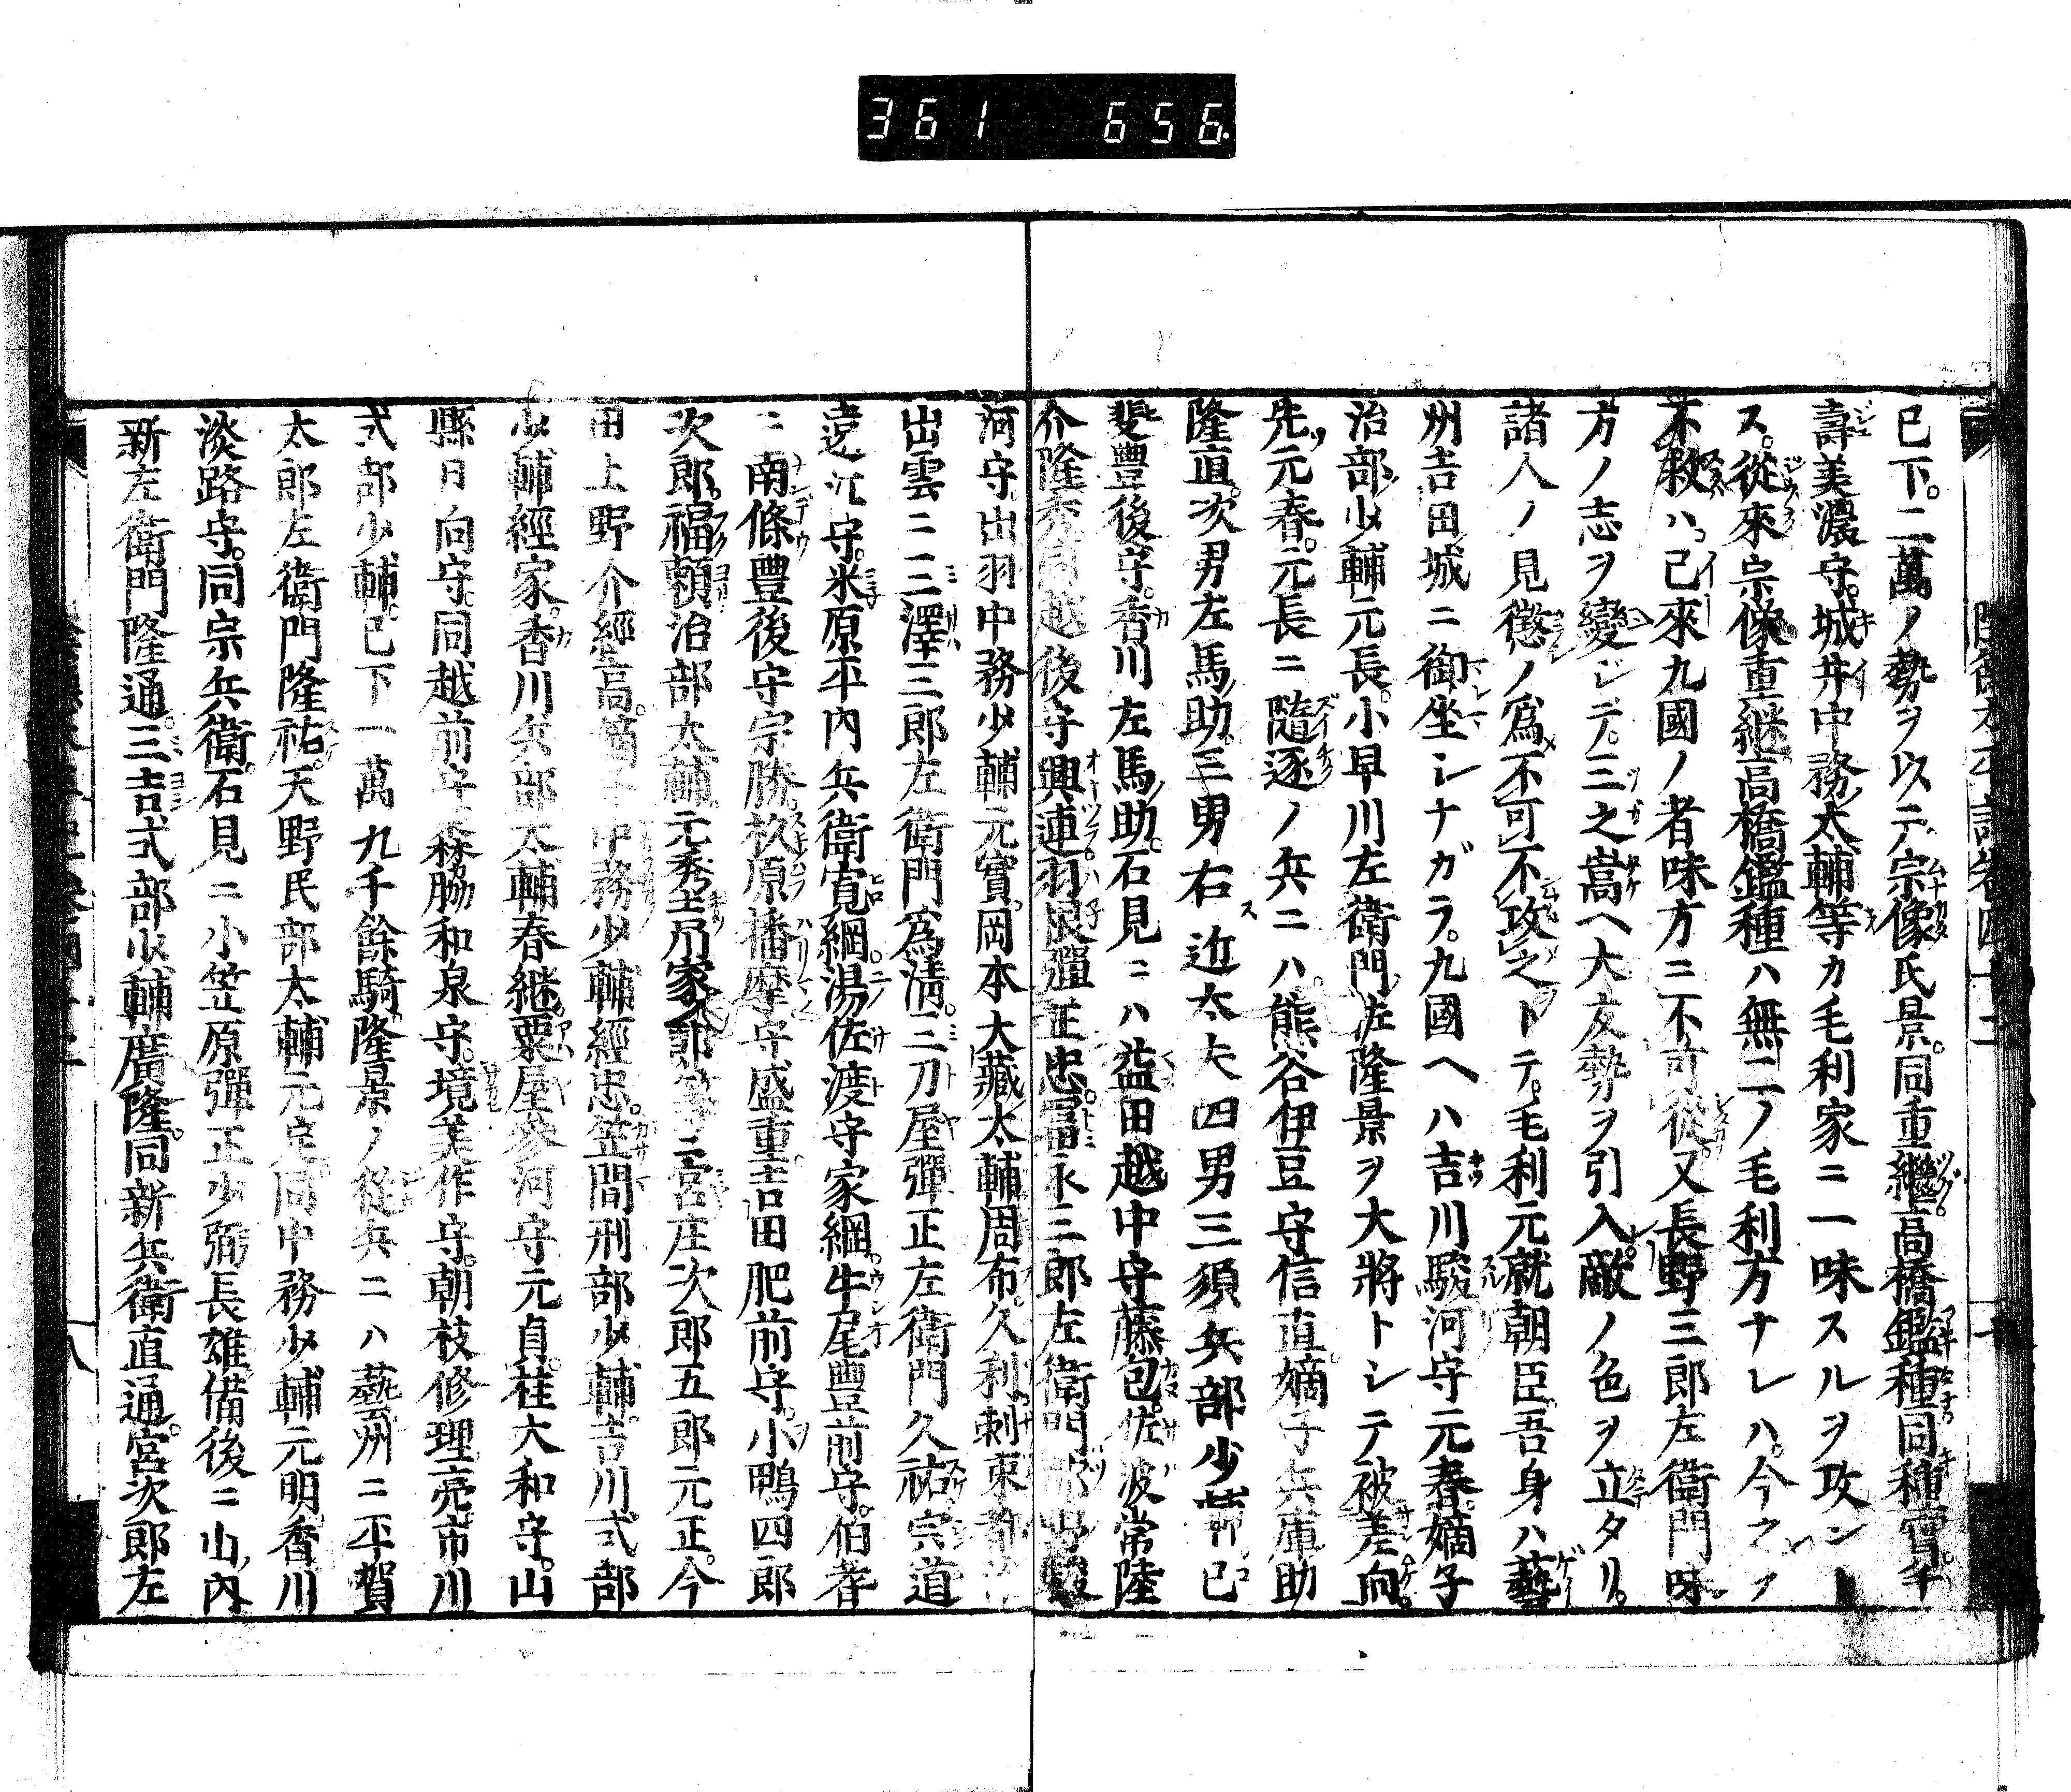 361 656
已下。二萬ノ勢ヲ以テ。宗像氏景。同重繼。高橋鑑種。同種實。千
壽美濃守。城井中務太輔等カ毛利家ニ一味スルヲ攻ン
ス。從來宗像重継高橋鑑種ハ無二ノ毛利方ナレハ。今之ヲ
不救ハ。已來九國ノ者味方ニ不可從。又長野三郎左衛門味
方ノ志ヲ變シテ。三之嵩ヘ大友勢ヲ引入。敵ノ色ヲ立タリ。
諸人ノ見懲ノ爲。不可不攻之トテ。毛利元就朝臣。吾身ハ藝
州吉田城ニ御坐シナガラ。九國ヘハ吉川駿河守元春。嫡子
治部少輔元長。小早川左衛門佐隆景ヲ大將トシテ被差向。
先元春。元長ニ隨逐ノ兵ニハ。熊谷伊豆守信直。嫡子兵庫助
隆直。次男左馬助。三男右近太夫四男三須兵部少
斐豐後守。香川左馬助。石見ニハ益田越中守藤包。佐波常陸
介隆秀。同越後守興連。羽根彈正忠。冨永三郎左衛門
河守。出羽中務少輔元實。岡本大藏太輔。周布。久利。刺束
出雲ニ三澤三郎左衛門爲清。三刀屋彈正左衛門久祐。宗道
遠江守。米原平内兵衛寛綱。湯佐渡守家綱。牛尾豐前守。伯耆
ニ南條豊後守宗勝。杦原播磨守盛重。吉田肥前守。小鴨四郎
次郎。福頼治部太輔元秀。吉川家人郎等ニ宮庄次郎五郎元正。今
田上野介經高。嫡子中務少輔經忠。笠間刑部少輔。吉川式部
少輔經家。香川兵部太輔春継。粟屋參河守元貞。桂大和守。山
縣日向守。同越前守。森脇和泉守。境美作守。朝枝修理亮。市川
式部少輔。已下一萬九千餘騎。隆景ノ從兵ニハ藝州ニ平賀
太郎左衛門隆祐。天野民部太輔元定。同中務少輔元明。香川
淡路守。同宗兵衛。石見ニ小笠原彈正少弼長雄。備後ニ山内
新左衛門隆通。三吉式部少輔廣隆。同新兵衛直通。宮次郎左